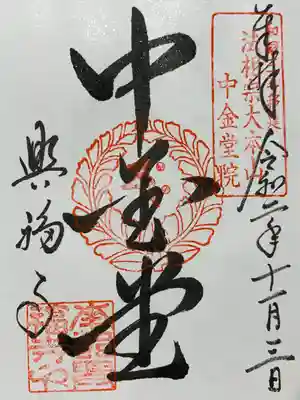 奉拝
令和二年十一月三日
法相宗大本山
中金堂院
中金堂
興福寺